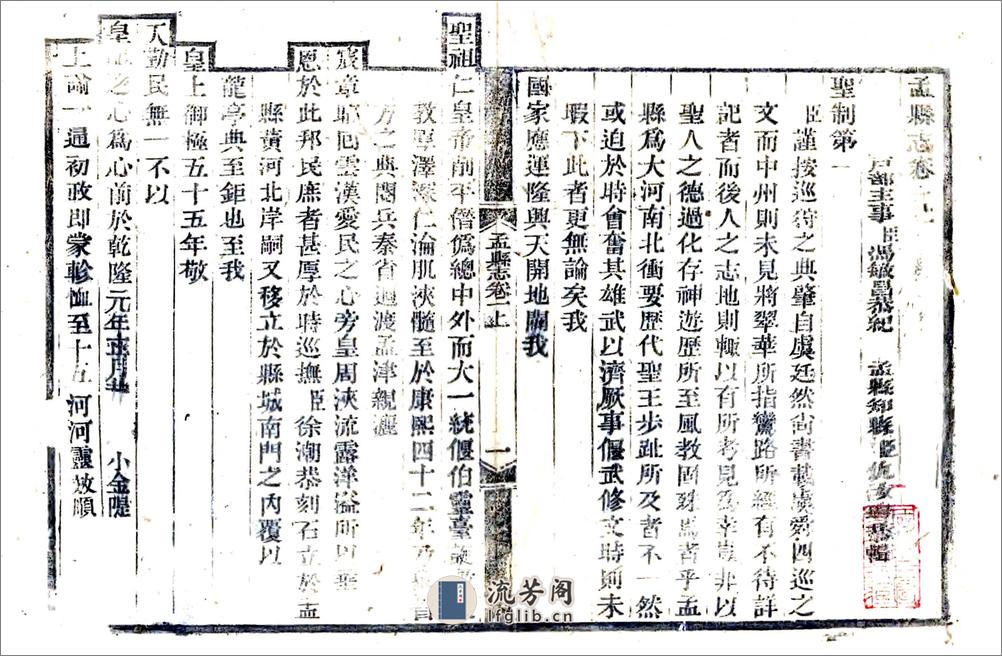 孟縣志卷一上
戶部主事臣馮敏昌恭紀 孟縣知縣臣仇汝瑚恭輯
聖制第一
臣謹按巡狩之典肇自虞廷然尚書載虞舜四巡之
文而中州則未見將翠華所指鸞路所經有不待詳
記者而後人之志地則輒以有所考見為幸豈非以
聖人之德過化存神遊歷所至風教固殊焉者乎孟
縣為大河南北衝要歷代聖王步趾所及者不一然
或迫於時會奮其雄武以濟厥事偃武修文時則未
暇下此者更無論矣我
國家應運隆興天開地闢我
孟縣志卷一上
一
聖祖仁皇帝削平僭偽總中外而大一統偃伯靈臺
教覃澤深仁淪肌浹髓至於康熙四十二年
方之典閱兵秦省過渡孟津親灑
宸章昭回雲漢愛民之心旁皇周浹流露洋溢所以
恩於此邦民庶者甚厚於時巡撫臣徐潮恭刻石立於孟
縣黃河北岸嗣又移立於縣城南門之內覆以
龍亭典至鉅也至我
皇上御極五十五年敬
天勤民無一不以
皇祖之心為心前於乾隆元年正月 小金隄
上諭一通初政即蒙軫恤至十五 河河靈效順
流芳阁
lfglib.cn